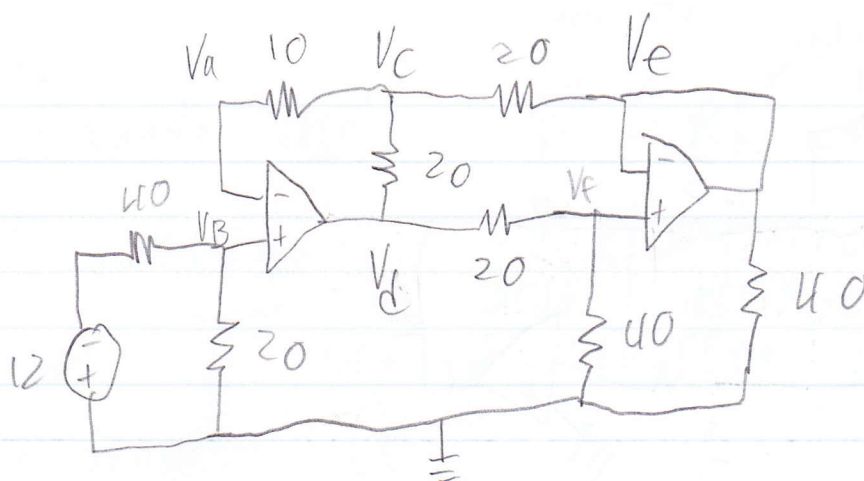 Va 10 Vc 20 Ve
- 20 -
40 VB + Vf +
Vd 20
12 - + 20 40 40